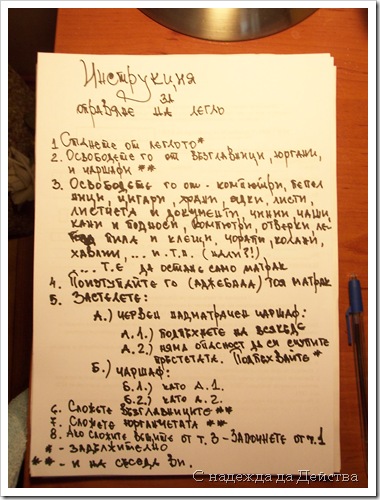 Инструкция
за
оправяне на легло
1 Станете от леглото*
2. Освободете го от възглавници, юргани,
и чаршафи **
3. Освободете го от - компютри, пепел
ници, цигари, храни, ядки, листи,
листчета и документи, чинии, чаши,
кани и подноси, компютри, отверки, ле-
пила и клещи, чорапи, колани,
хавлии, ... и т.н. (нали?!)
... т.е да остане само матрак
4. Поизтупайте го (аджебала) тоя матрак
5. Застелете:
А.) червен надматрачен чаршаф:
А.1.) подпъхнете на всякъде
А.2.) няма опасност да си счупите
пръстетата. Подпъхвайте *
Б.) чаршаф:
Б.1.) като А.1.
Б.2.) като А.2.
6. Сложете възглавниците **
7. Сложете юрганчетата **
8. Ако сложите вещите от т.3 - Започнете от т.1
* - задължително
** - и на съседа ви.
С надежда да Действа